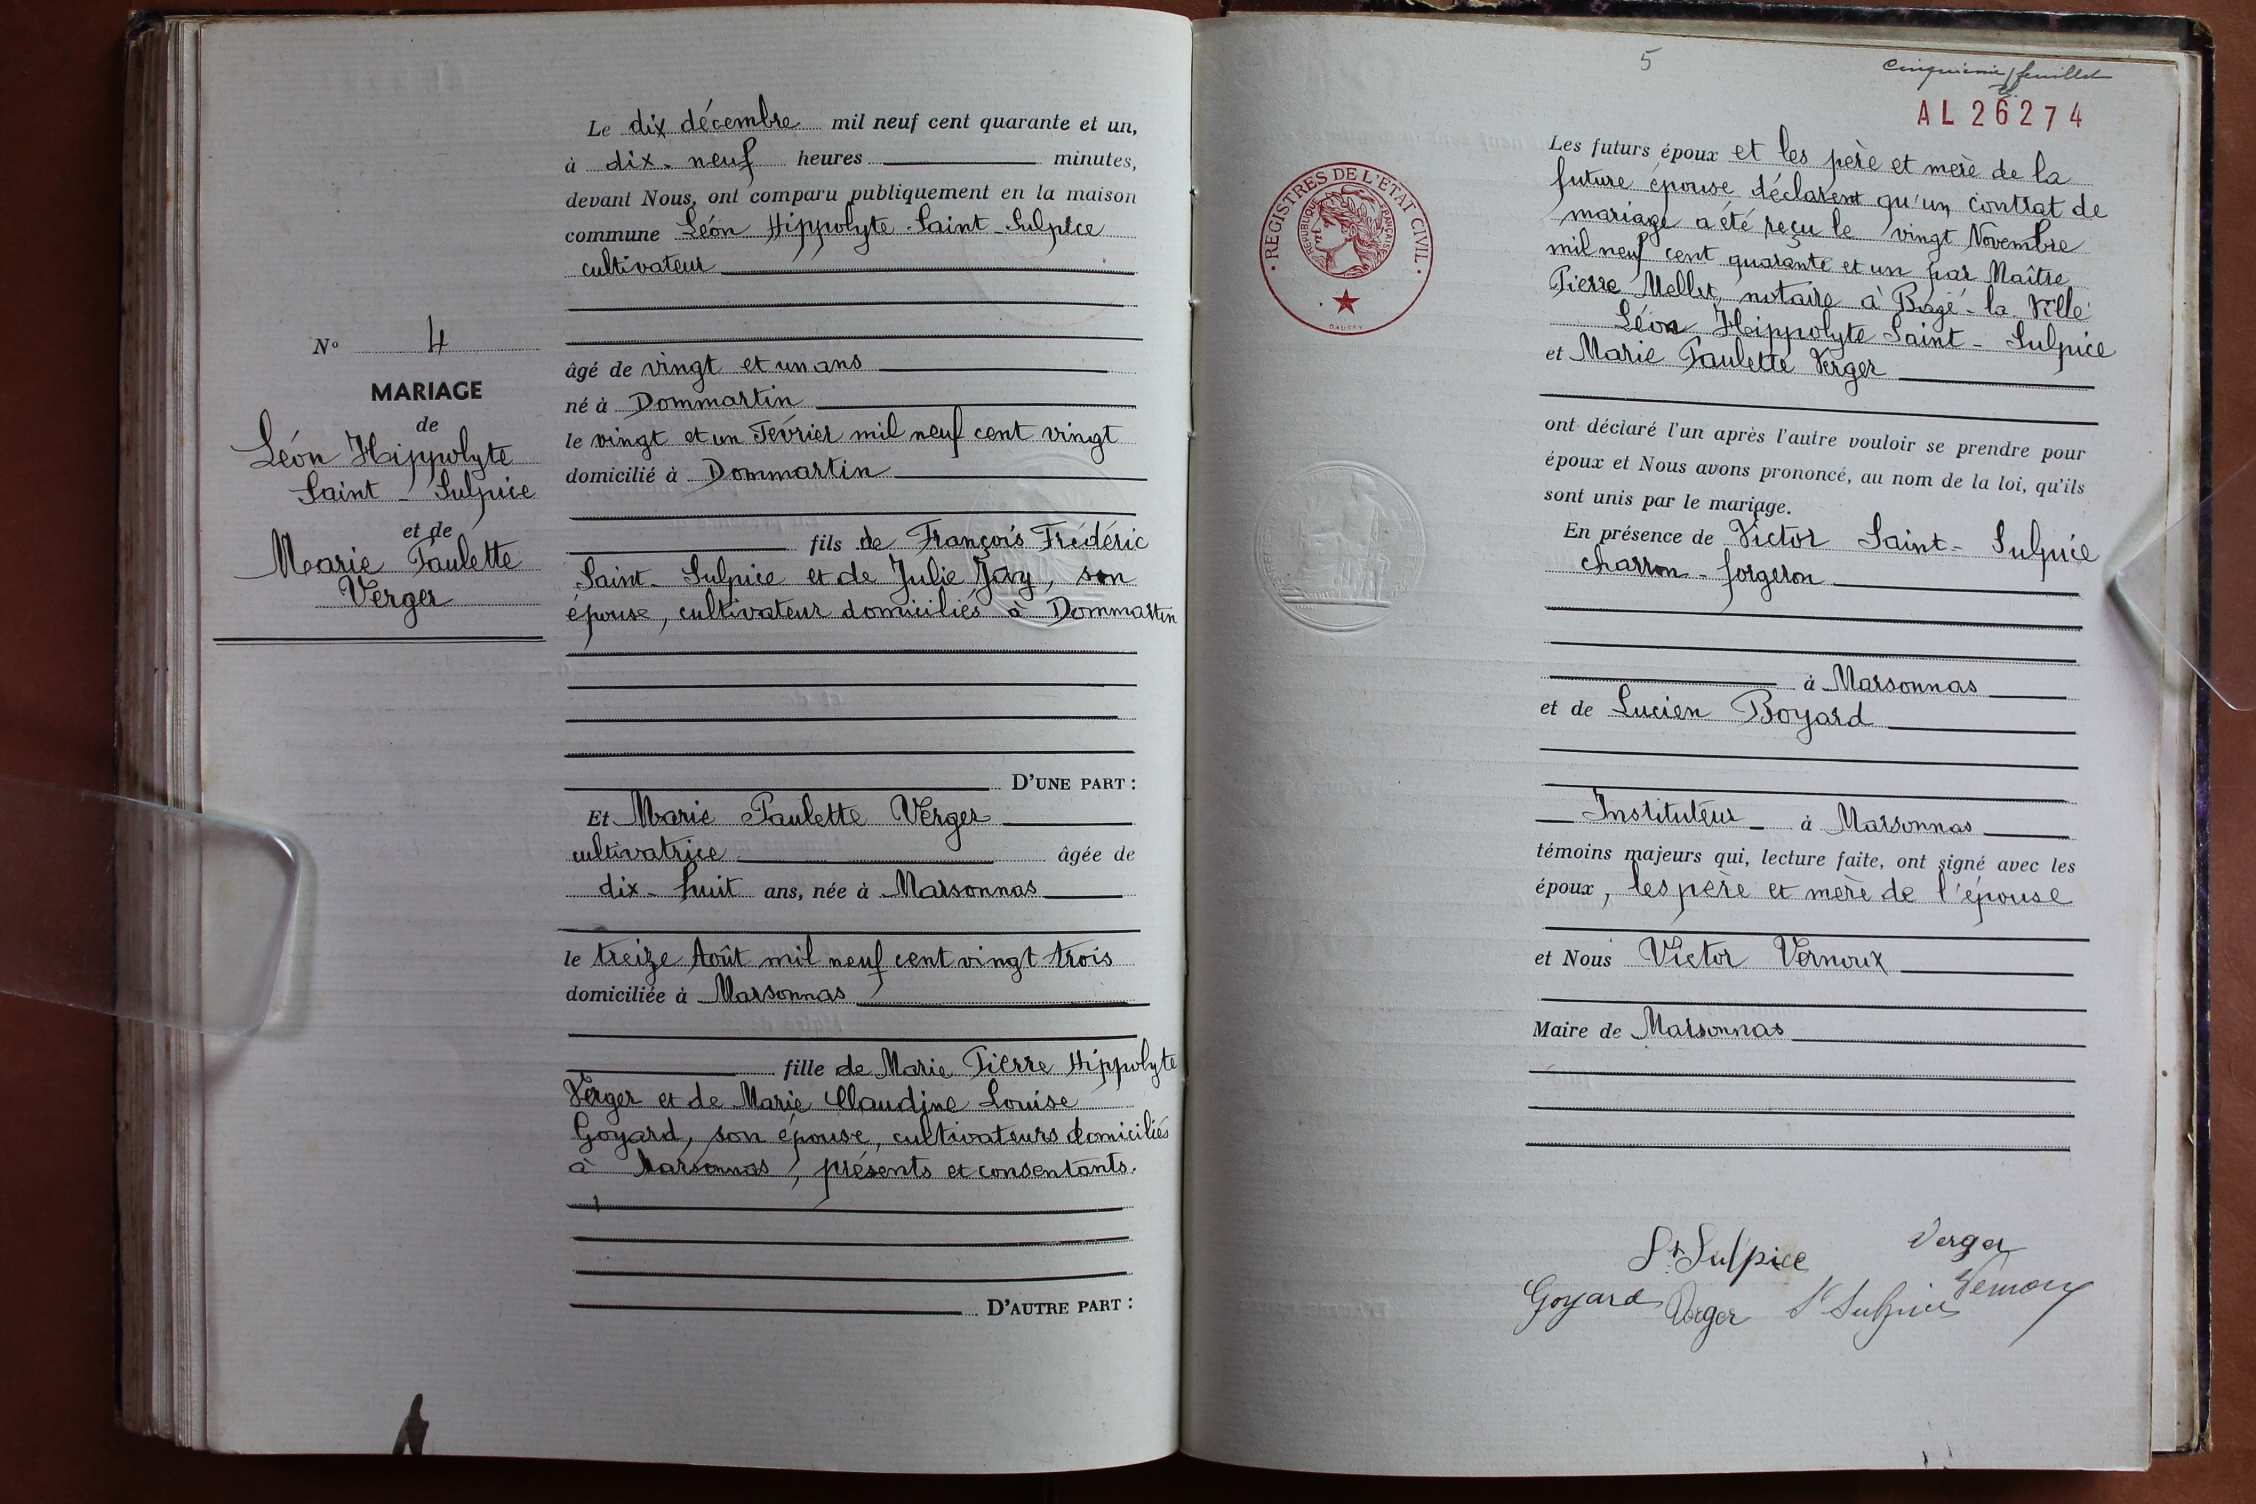 Le dix décembre mil neuf cent quarante et un,
à dix-neuf heures minutes,
devant Nous, ont comparu publiquement en la maison
commune Léon Hippolyte Saint-Sulpice
cultivateur
âgé de vingt et un ans
né à Dommartin
le vingt et un Février mil neuf cent vingt
domicilié à Dommartin
fils de François Frédéric
Saint-Sulpice et de Julie Jay, son
épouse, cultivateur domiciliés à Dommartin
D'UNE PART :
Et Marie Paulette Verger
cultivatrice âgée de
dix-huit ans, née à Marsonnas
le treize Août mil neuf cent vingt trois
domiciliée à Marsonnas
fille de Marie Pierre Hippolyte
Verger et de Marie Claudine Louise
Goyard, son épouse, cultivateurs domiciliés
à Marsonnas, présents et consentants.
D'AUTRE PART :
N° 4
MARIAGE
de
Léon Hippolyte
Saint-Sulpice
et de
Marie Paulette
Verger
5
Cinquième feuillet
AL26274
REGISTRES DE L'ETAT CIVIL
REPUBLIQUE FRANÇAISE
Les futurs époux et les père et mère de la
future épouse déclarent qu'un contrat de
mariage a été reçu le vingt Novembre
mil neuf cent quarante et un par Maître
Pierre Mellet, notaire à Bagé-la Ville
Léon Hippolyte Saint-Sulpice
et Marie Paulette Verger
ont déclaré l'un après l'autre vouloir se prendre pour
époux et Nous avons prononcé, au nom de la loi, qu'ils
sont unis par le mariage.
En présence de Victor Saint-Sulpice
charron-forgeron
à Marsonnas
et de Lucien Boyard
Instituteur à Marsonnas
témoins majeurs qui, lecture faite, ont signé avec les
époux, les père et mère de l'épouse
et Nous Victor Vernoux
Maire de Marsonnas
St Sulpice Verger
Goyard Verger St Sulpice Vernoux